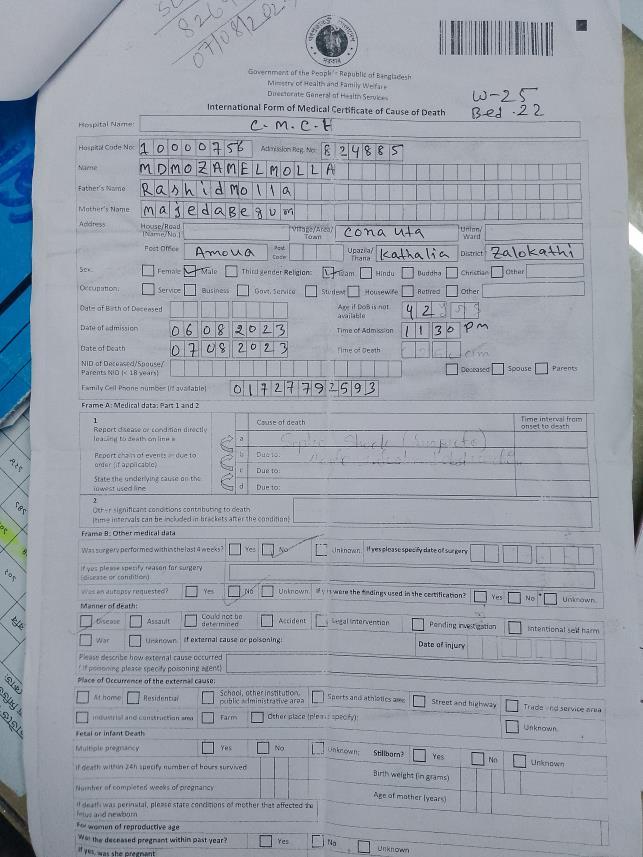 07/08/202
Government of the People's Republic of Bangladesh
Ministry of Health and Family Welfare
Directorate General of Health Services
International Form of Medical Certificate of Cause of Death
W-25
Bed.22
Hospital Name: C.M.C.H
Hospital Code No: 10000756 Admission Reg. No: 824885
Name MDMOZAMELMOLLA
Father's Name RashidMolla
Mother's Name majedaBegum
Address House/Road (Name/No.) Village/Area/Town Conauta Union/Ward
Post Office Amoua Post Code Upazila/Thana Kathalia District Zalokathi
Sex: Female Male Third gender Religion: Islam Hindu Buddha Christian Other
Occupation: Service Business Govt. Service Student Housewife Retired Other
Date of Birth of Deceased Age if DoB is not available 42
Date of admission 06082023 Time of Admission 1130 pm
Date of Death 07082023 Time of Death
NID of Deceased/Spouse/Parents NID (< 18 years) Deceased Spouse Parents
Family Cell Phone number (if available) 01727792593
Frame A: Medical data: Part 1 and 2
1 Cause of death Time interval from onset to death
Report disease or condition directly leading to death on line a
a Septic Shock
Report chain of events in due to order (if applicable)
b Due to:
c Due to:
State the underlying cause on the lowest used line
d Due to:
2
Other significant conditions contributing to death
(time intervals can be included in brackets after the condition)
Frame B: Other medical data
Was surgery performed within the last 4 weeks? Yes No Unknown If yes please specify date of surgery
If yes please specify reason for surgery (disease or condition)
Was an autopsy requested? Yes No Unknown. If yes were the findings used in the certification? Yes No Unknown.
Manner of death:
Disease Assault Could not be determined Accident Legal intervention Pending investigation Intentional self harm
War Unknown If external cause or poisoning: Date of injury
Please describe how external cause occurred
(If poisoning please specify poisoning agent)
Place of Occurrence of the external cause:
At home Residential School, other institution, public administrative area Sports and athletics area Street and highway Trade and service area
Industrial and construction area Farm Other place (please specify): Unknown
Fetal or infant Death
Multiple pregnancy Yes No Unknown; Stillborn? Yes No Unknown
If death within 24h specify number of hours survived Birth weight (in grams)
Number of completed weeks of pregnancy Age of mother (years)
If death was perinatal, please state conditions of mother that affected the fetus and newborn
For women of reproductive age
Was the deceased pregnant within past year? Yes No Unknown
If yes, was she pregnant